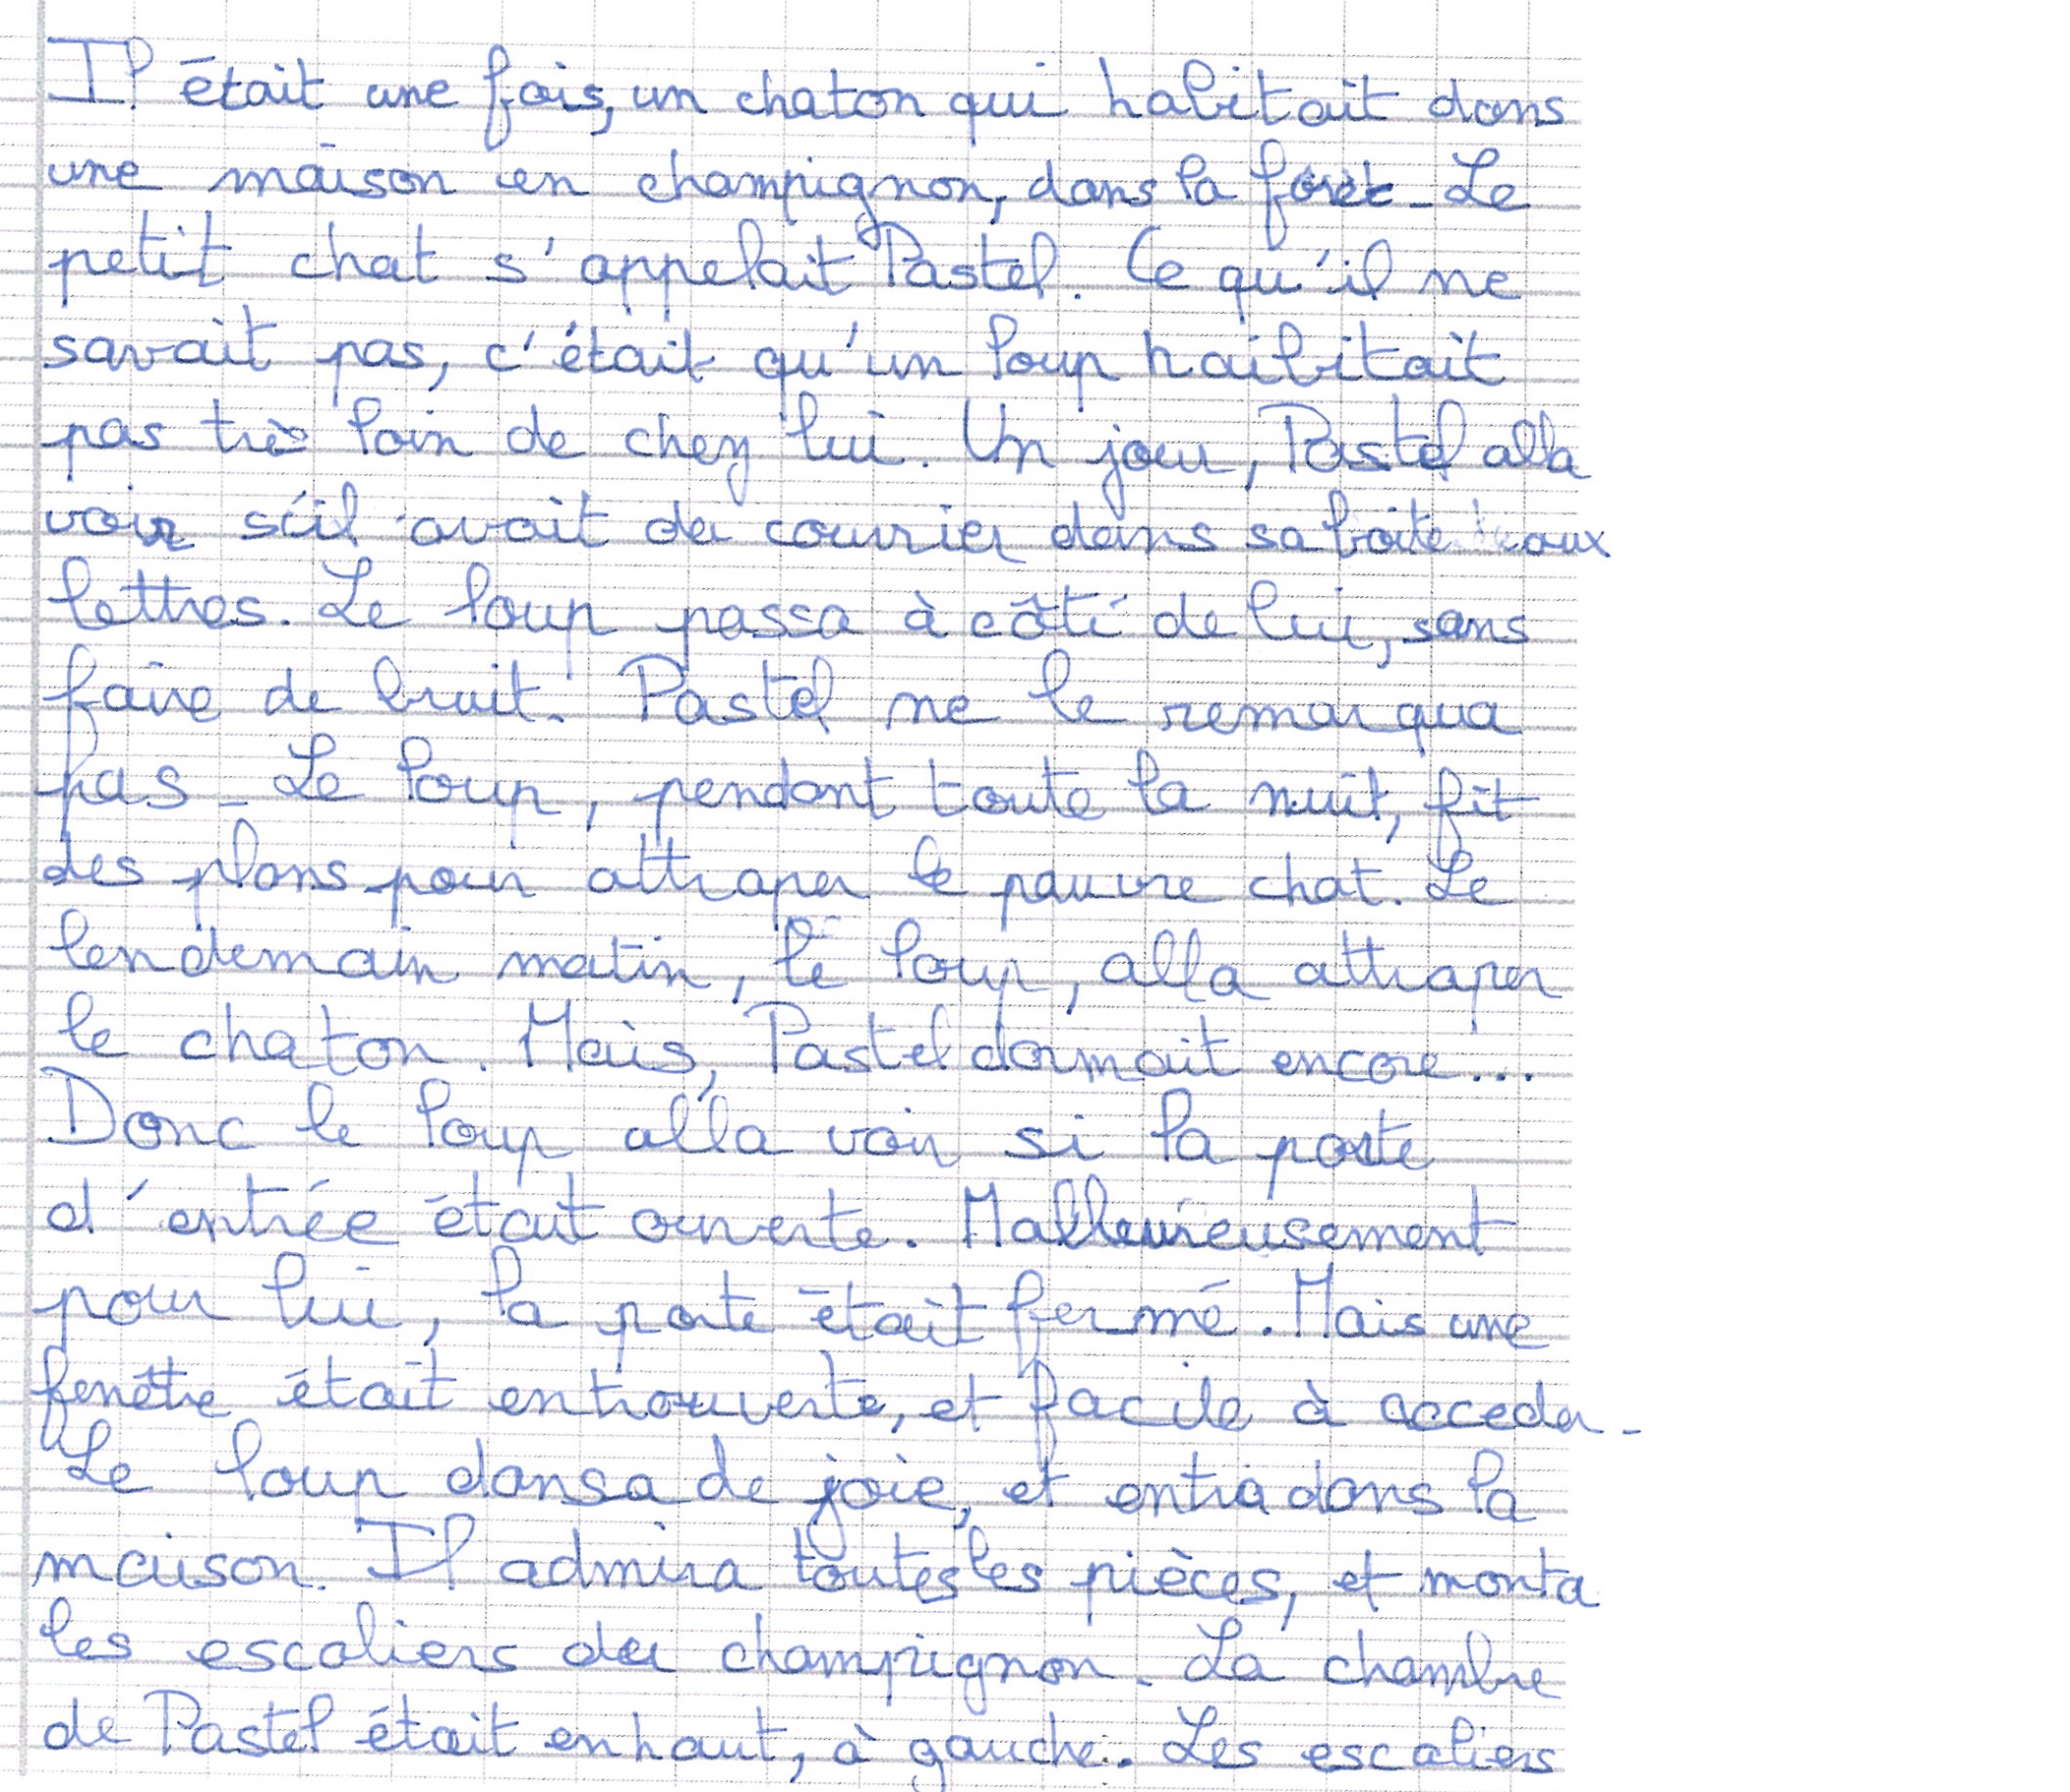 Il était une fois, un chaton qui habitait dans
une maison en champignon, dans la forêt. Le
petit chat s'appelait Pastel. Ce qu'il ne
savait pas, c'était qu'un loup haibitait
pas très loin de chez lui. Un jour, Pastel alla
voir s'il avait du courrier dans sa boite aux
lettres. Le loup passa à côté de lui, sans
faire de bruit. Pastel ne le remarqua
pas. Le loup, pendant toute la nuit, fit
des plans pour attraper le pauvre chat. Le
lendemain matin, le loup, alla attraper
le chaton. Mais, Pastel dormait encore...
Donc le loup alla voir si la porte
d'entrée était ouverte. Malheureusement
pour lui, la porte était fermé. Mais une
fenêtre était entrouverte, et facile à acceder.
Le loup dansa de joie, et entra dans la
maison. Il admira toutes les pièces, et monta
les escaliers du champignon. La chambre
de Pastel était en haut, à gauche. Les escaliers